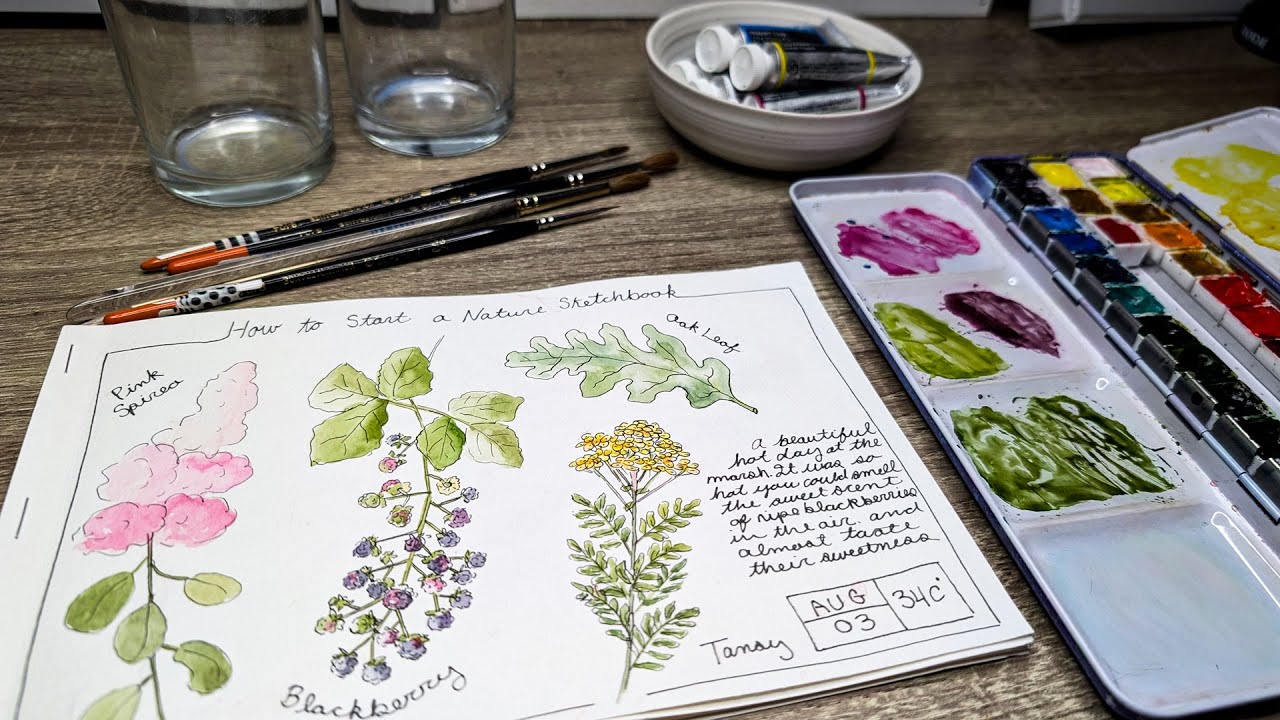 How to Start a Nature Sketchbook
Pink
Spirea
Oak Leaf
A beautiful
hot day at the
marsh. It was so
hot you could smell
the sweet scent
of ripe blackberries
in the air. and
almost taste
their sweetness
AUG
03
34C°
Tansy
Blackberry